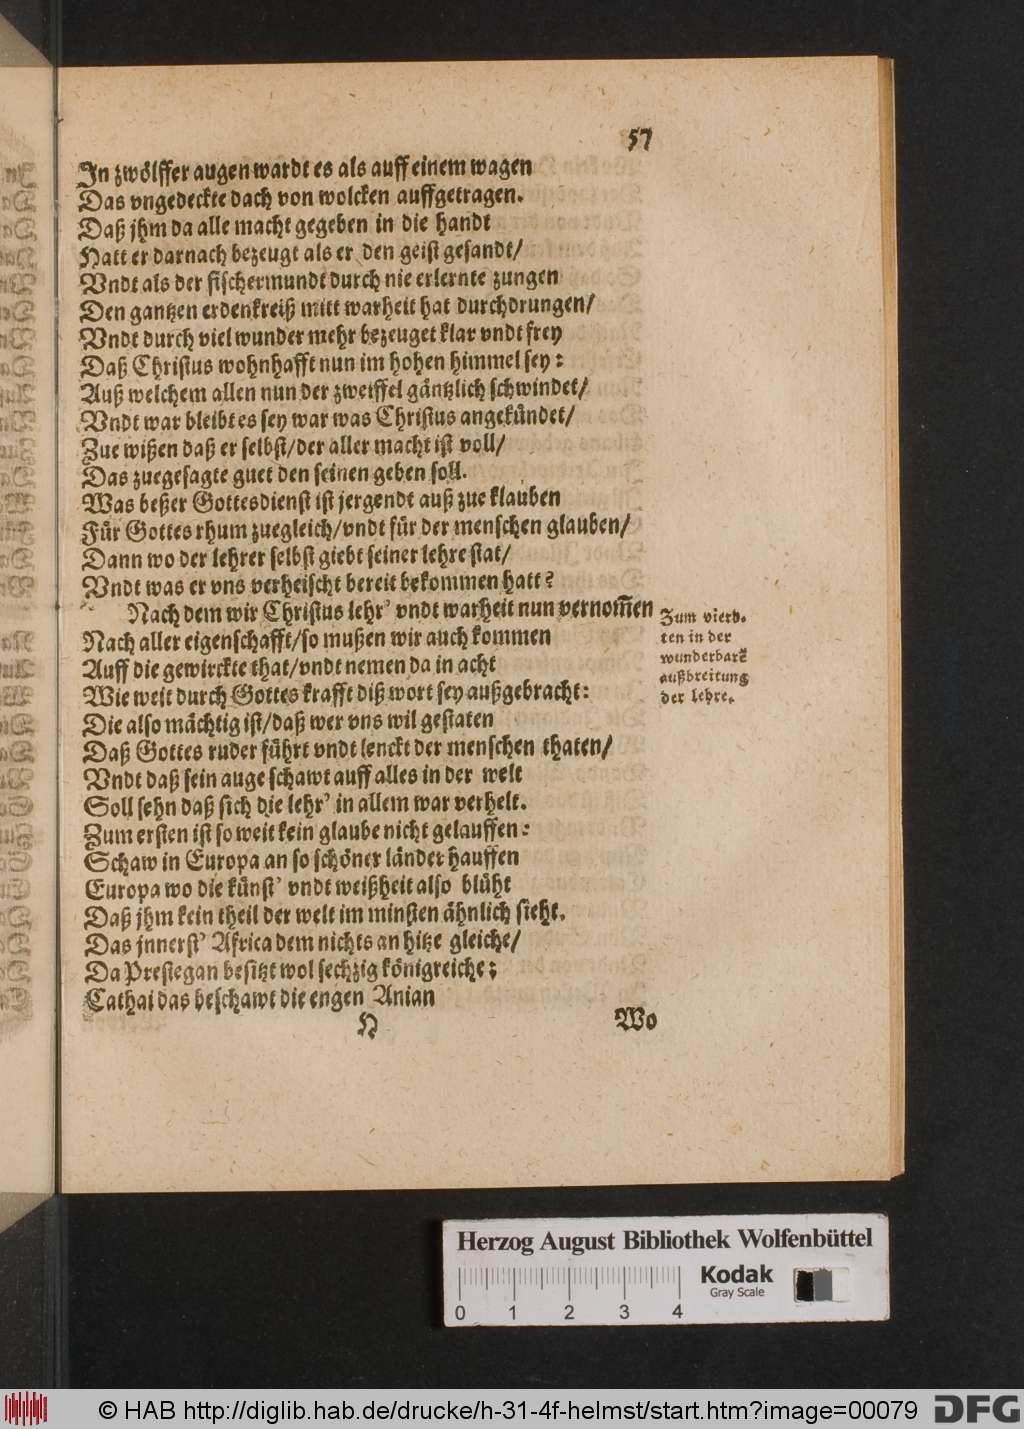 57
In zwölffer augen wardt es als auff einem wagen
Das vngedeckte dach von wolcken auffgetragen.
Daß jhm da alle macht gegeben in die handt
Hatt er darnach bezeugt als er den geist gesandt/
Vndt als der fischermundt durch nie erlernte zungen
Den gantzen erdenkreiß mitt warheit hat durchdrungen/
Vndt durch viel wunder mehr bezeuget klar vndt frey
Daß Christus wohnhafft nun im hohen himmel sey:
Auß welchem allen nun der zweiffel gäntzlich schwindet/
Vndt war bleibt es sey war was Christus angekündet/
Zue wißen daß er selbst/der aller macht ist voll/
Das zuegesagte guet den seinen geben soll.
Was beßer Gottesdienst ist jergendt auß zue klauben
Für Gottes rhum zuegleich/vndt für der menschen glauben/
Dann wo der lehrer selbst giebt seiner lehre stat/
Vndt was er vns verheischt bereit bekommen hatt?
Nach dem wir Christus lehr' vndt warheit nun vernom̃en
Nach aller eigenschafft/so mußen wir auch kommen
Auff die gewirckte that/vndt nemen da in acht
Wie weit durch Gottes krafft diß wort sey außgebracht:
Die also mächtig ist/daß wer vns wil gestaten
Daß Gottes ruder führt vndt lenckt der menschen thaten/
Vndt daß sein auge schawt auff alles in der welt
Soll sehn daß sich die lehr' in allem war verhelt.
Zum ersten ist so weit kein glaube nicht gelauffen:
Schaw in Europa an so schöner länder hauffen
Europa wo die künst' vndt weißheit also blüht
Daß jhm kein theil der welt im minsten ähnlich sieht.
Das jnnerst' Africa dem nichts an hitze gleiche/
Da Prestegan besitzt wol sechzig königreiche;
Cathai das beschawt die engen Anian
H
Wo
Zum vierd-
ten in der
wunderbarẽ
außbreitung
der lehre.
Herzog August Bibliothek Wolfenbüttel
Kodak
Gray Scale
0 1 2 3 4
© HAB http://diglib.hab.de/drucke/h-31-4f-helmst/start.htm?image=00079
DFG